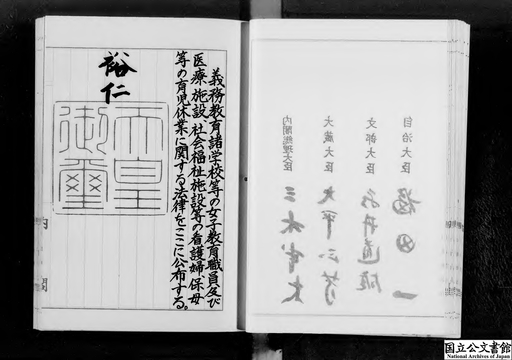 義務教育諸学校等の女子教育職員及び
医療施設、社会福祉施設等の看護婦、保母
等の育児休業に関する法律をここに公布する。
裕仁
天皇
御璽
内閣
自治大臣
福田一
文部大臣
永井道雄
大蔵大臣
大平正芳
内閣総理大臣
三木武夫
国立公文書館
National Archives of Japan